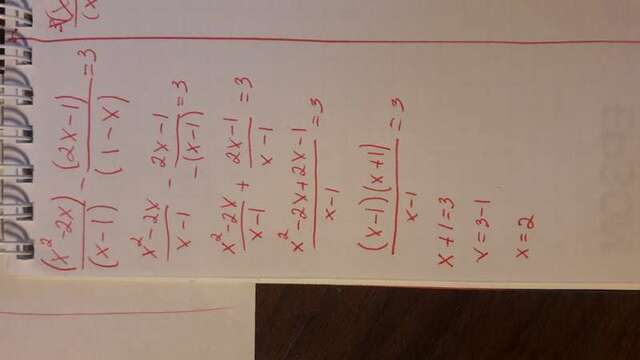 (x²-2x)/(x-1) - (2x-1)/(1-x) = 3
x²-2x/x-1 - 2x-1/-(x-1) = 3
x²-2x/x-1 + 2x-1/x-1 = 3
x²-2x+2x-1/x-1 = 3
(x-1)(x+1)/x-1 = 3
x+1=3
x=3-1
x=2